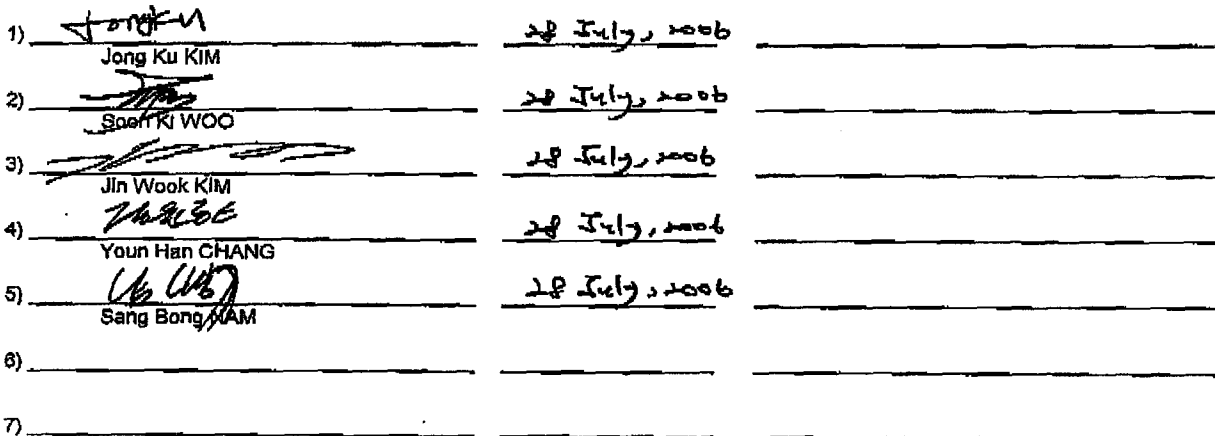 1) JongKu 28 July, 2006
Jong Ku KIM
2) 28 July, 2006
Soon Ki WOO
3) 28 July, 2006
Jin Wook KIM
4) 28 July, 2006
Youn Han CHANG
5) 28 July, 2006
Sang Bong NAM
6)
7)